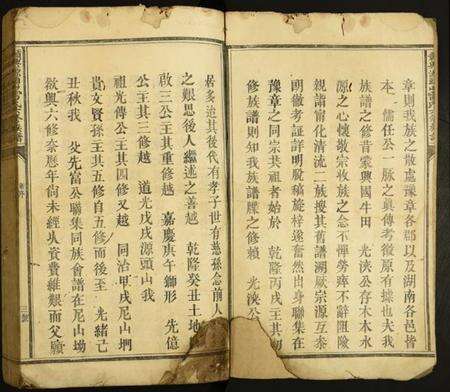 章則我族之散處豫章各郡以及湖南各邑皆
本　儒任公一脉之真傳考徵原有據也夫我
族譜之修昔蒙興國牛田　光浹公存木本水
源之心懷敬宗收族之念不憚勞瘁不辭阻險
親詣甯化清流二族搜其舊譜溯厥宗源互叅
明徹考証詳明脫稿旋梓遂奮然出身聯集在
豫章之同宗共祖者始於　乾隆丙戌王其初
修族譜則知我族譜牒之修賴　光浹公
居多迨其後代有孝子世有慈孫念前人
之艱思後人繼述之善越　乾隆癸丑土地
啟三公王其重修越　嘉慶庚午獅形　先億
公王其三修越　道光戊戌源頭山我
祖光傳公王其四修又越　同治甲戌尼山堋
貴文賢孫王其五修自五修而後至　光緒己
丑秋我　父先富公聯集同族會譜在尼山堋
歘興六修奈歷年尙未經乆資費維艱而父願
三